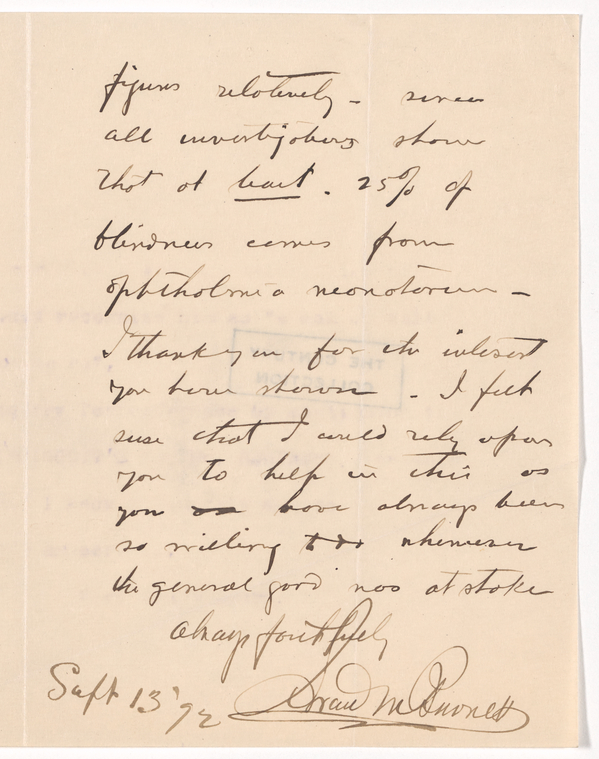 figures relatively – since
all investigators show
that at least. 25% of
blindness comes from
ophthalmia neonatorum –
I thank you for the interest
you have shown. I felt
sure that I could rely upon
you to help in this as
you have always been
so willing to do whenever
the general good was at stake
Always faithfully
Swan M. Burnett
Sept 13 '92